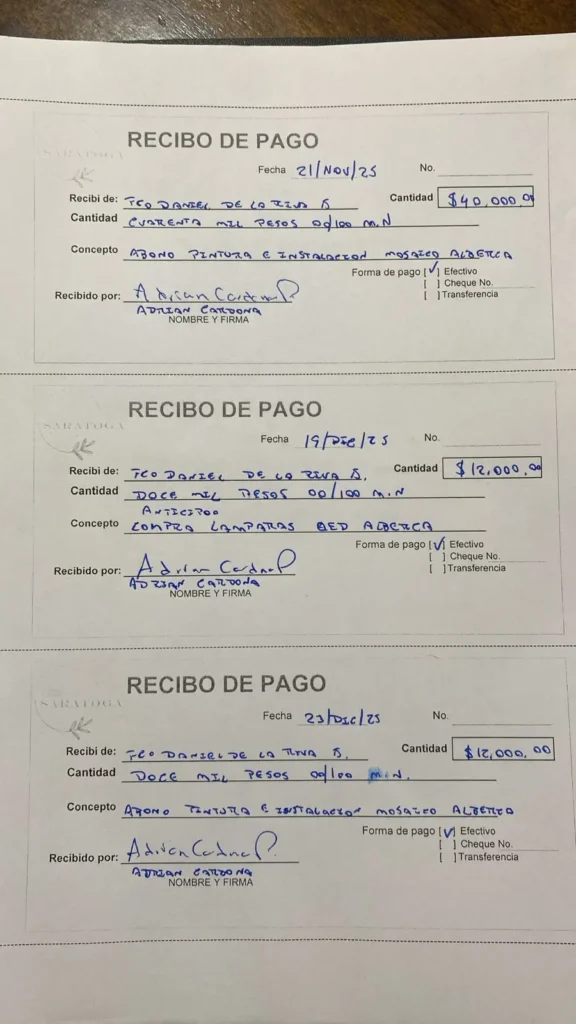 SARATOGA
RECIBO DE PAGO
Fecha 21/NOV/25 No.
Recibi de: FCO DANIEL DE LA RIVA S Cantidad $40,000.00
Cantidad CUARENTA MIL PESOS 00/100 M.N
Concepto ABONO PINTURA E INSTALACION MOSAICO ALBERCA
Forma de pago [✓] Efectivo
[ ] Cheque No.
[ ] Transferencia
Recibido por: Adrian Cardona P.
ADRIAN CARDONA
NOMBRE Y FIRMA
SARATOGA
RECIBO DE PAGO
Fecha 19/DIC/25 No.
Recibi de: FCO DANIEL DE LA RIVA S. Cantidad $12,000.00
Cantidad DOCE MIL PESOS 00/100 M.N
ANTICIPO
Concepto COMPRA LAMPARAS LED ALBERCA
Forma de pago [✓] Efectivo
[ ] Cheque No.
[ ] Transferencia
Recibido por: Adrian Cardona P
ADRIAN CARDONA
NOMBRE Y FIRMA
SARATOGA
RECIBO DE PAGO
Fecha 23/DIC/25 No.
Recibi de: FCO DANIEL DE LA RIVA S. Cantidad $12,000.00
Cantidad DOCE MIL PESOS 00/100 M.N.
Concepto ABONO PINTURA E INSTALACION MOSAICO ALBERCA
Forma de pago [✓] Efectivo
[ ] Cheque No.
[ ] Transferencia
Recibido por: Adrian Cardona P.
ADRIAN CARDONA
NOMBRE Y FIRMA